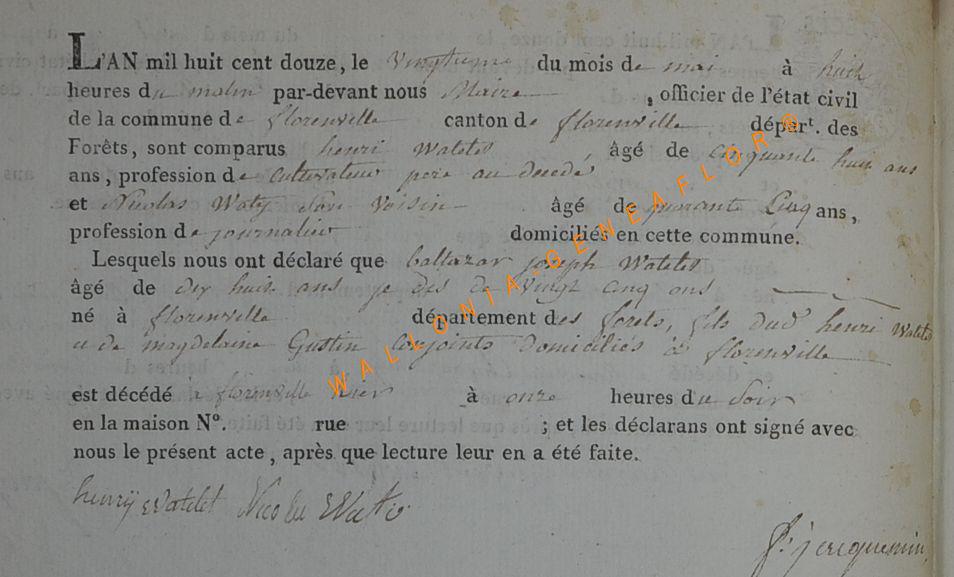 L'AN mil huit cent douze, le vingtieme du mois de mai à huit
heures du matin par-devant nous Maire , officier de l'état civil
de la commune de florenville canton de florenville départ. des
Forêts, sont comparus henri Watelet âgé de cinquante huit ans
ans, profession de cultivateur pere au decedé
et Nicolas Waty son Voisin âgé de quarante Cinq ans,
profession de journalier domiciliés en cette commune.
Lesquels nous ont déclaré que baltazar joseph Watelet
âgé de dix huit ans je dis de vingt cinq ans
né à florenville département des forets, fils dud henri Watelet
et de magdelaine Gustin Conjoints domiciliés à florenville
est décédé a florenville hier à onze heures du Soir
en la maison N°. rue ; et les déclarans ont signé avec
nous le présent acte, après que lecture leur en a été faite.
henrÿ Watelet Nicolas Watÿ
jacquemin
WALLONIA-GENEAFLOR®